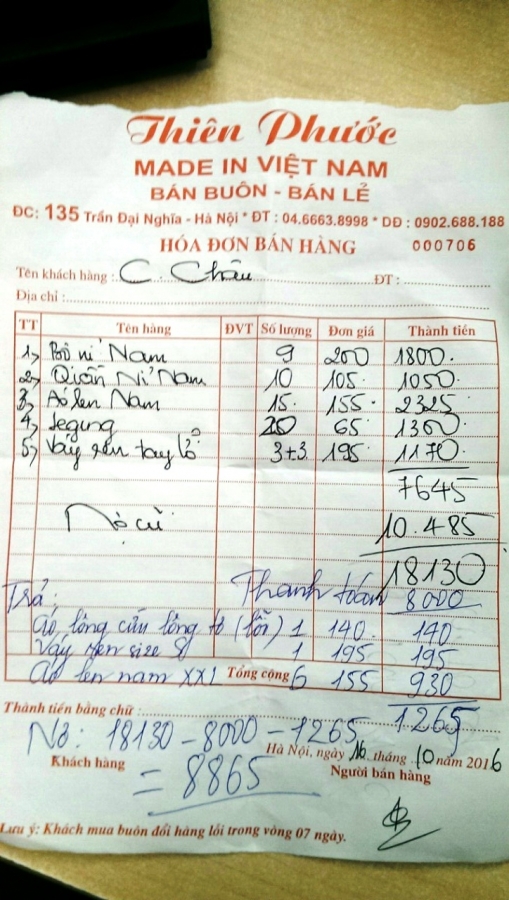 Thiên Phước
MADE IN VIỆT NAM
BÁN BUÔN - BÁN LẺ
ĐC: 135 Trần Đại Nghĩa - Hà Nội * ĐT : 04.6663.8998 * DĐ : 0902.688.188
HÓA ĐƠN BÁN HÀNG 000706
Tên khách hàng : C. Châu ĐT :
Địa chỉ :
TT Tên hàng ĐVT Số lượng Đơn giá Thành tiền
1, Bộ nỉ Nam 9 200 1800.
2, Quần Nỉ Nam 10 105. 1050.
3, Áo len Nam 15. 155. 2325
4, Leging 20 65 1300.
5, Váy ren tay lỡ 3+3 195 1170.
7645
Nợ cũ 10.485
18130
Thanh toán 8000
Trả:
Áo lông cừu lông to (lỗi) 1 140. 140
Váy ren size S 1 195 195
Áo len nam XXL Tổng cộng 6 155 930
Thành tiền bằng chữ : 1265
Nợ: 18130 - 8000 - 1265
Hà Nội, ngày 16 tháng 10 năm 2016
Khách hàng = 8865 Người bán hàng
Lưu ý: Khách mua buôn đổi hàng lỗi trong vòng 07 ngày.